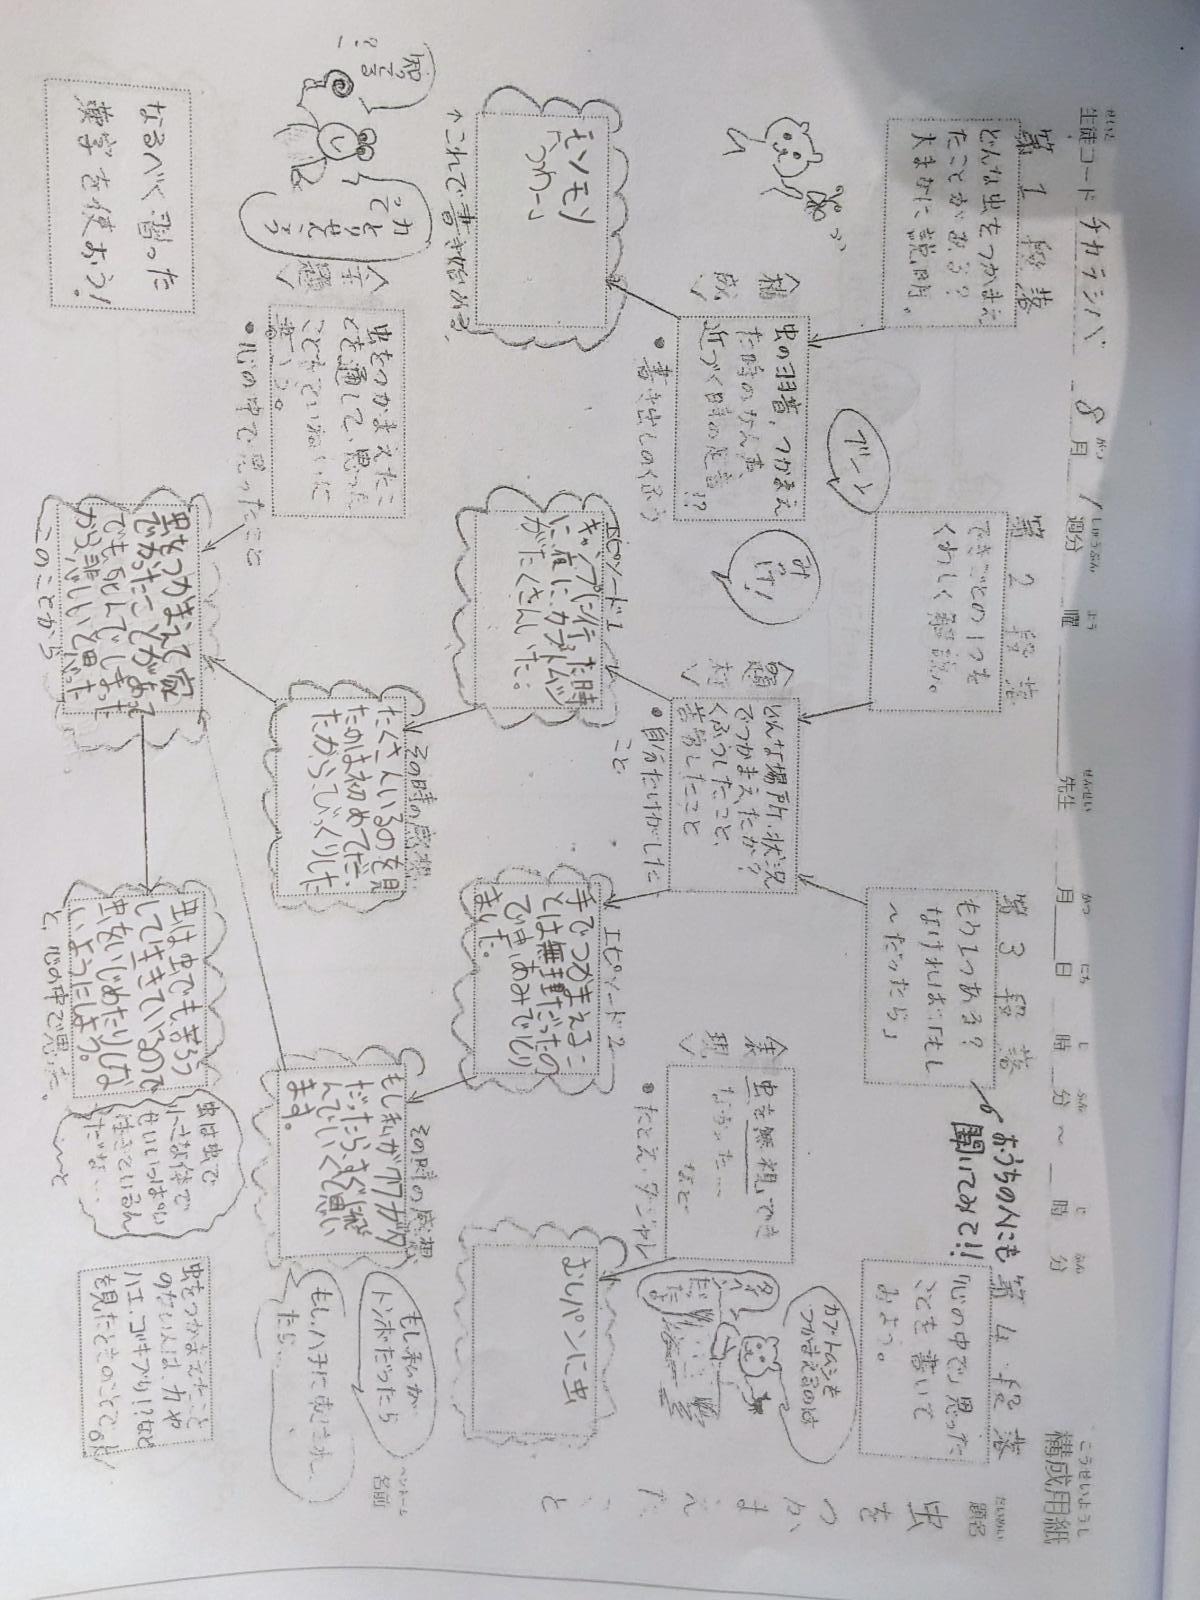 構成用紙
こうせいようし
題名
だいめい
虫をつかまえたこと
ペンネーム
名前
せいと
生徒コード チカラシバ
8月1週分
がつ
しゅうぶん
よう
曜
せんせい
先生
がつ にち じ ふん じ ふん
月 日 時 分 ~ 時 分
第1段落
どんな虫をつかまえ
たことがある?
大まかに説明。
第2段落
できごとの1つを
くわしく解説。
第3段落
もう1つある?
なければ「もし
~だったら」
おうちの人にも
聞いてみて!!
第4段落
「心の中で」思った
ことを書いて
およう。
<構成>
虫の羽音、つかまえ
た時のなん声、
近づく時の足音!?
・書き出しのくふう
ブーン
みっけ!
<題材>
どんな場所、状況
でつかまえたか?
くふうしたこと、
苦労したこと
・自分だけがした
こと
<表現>
虫を無視でき
なかった…
など
・たとえ・ダジャレ
カブトムシを
つかまえるのは
タイ
ヘン
だな
↑これで書き始める。
エピソード1
キャンプに行った時
に夜にカブトムシ
がたくさんいた。
エピソード2
手でつかまえるこ
とは無理だったの
で虫あみでとり
ました。
むしパンに虫
知ってる
?
<主題>
虫をつかまえたこ
とを通して、思った
・心の中で思ったこと
その時の感想
たくさんいるのを見
たのは初めてだっ
たから、びっくりした
その時の感想
もし私がカブトムシ
だったら、すぐに飛
んでいくと思い
ます。
もし私が
トンボだったら
もし、ハチにさされ
たら…
なるべく習った
漢字を使おう!
虫をつかまえて家
でかったことがあって
でも死んでしまった
から悲しいと思った
このことから
虫は虫でも苦ろう
して生きているので
虫をいじめたりしな
いようにしよう。
と、心の中で思った。
虫は虫で
小さな体で
せいいっぱい
生きているん
だな…
~と
虫をつかまえたこと
のない人は、カや
ハエ、ゴキブリ!?など
を見たときのことでもOK!